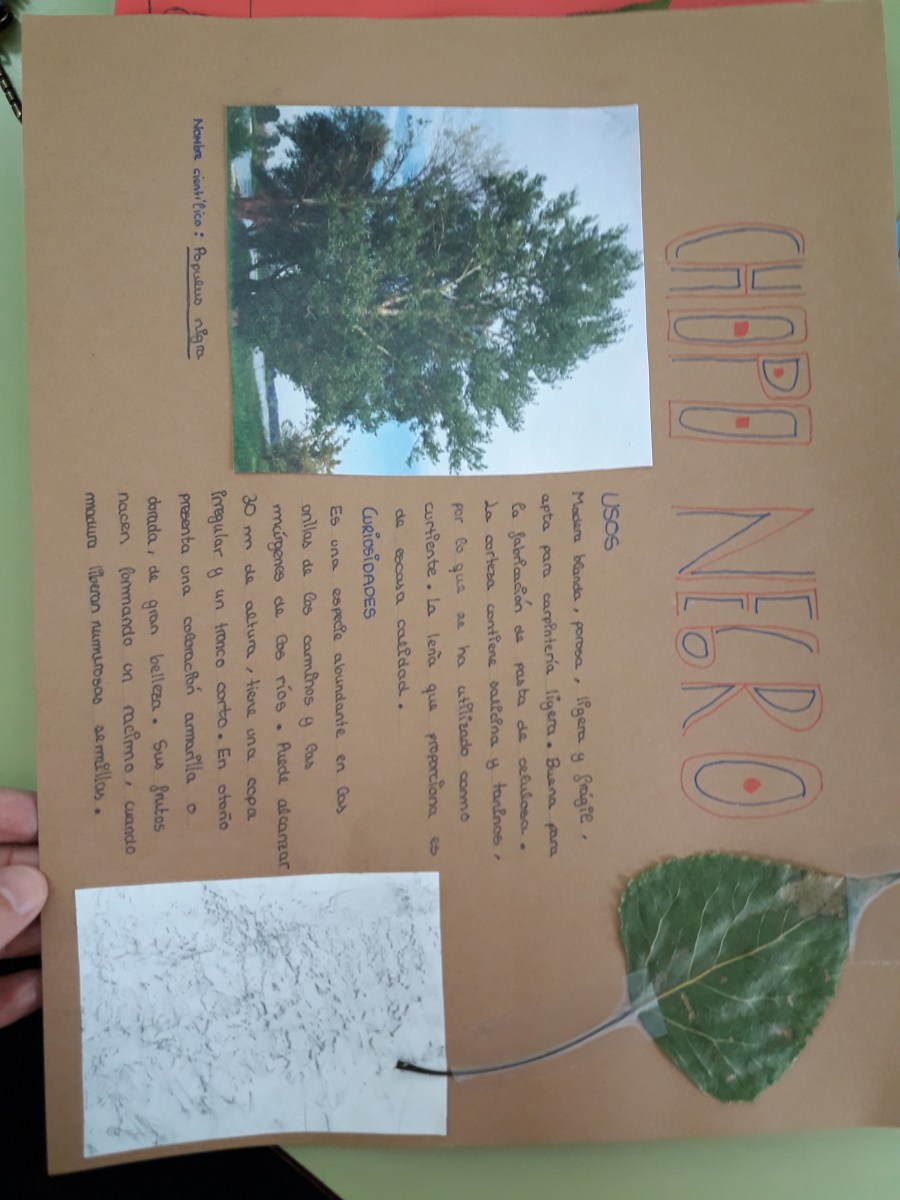 CHOPO NEGRO
USOS
Madera blanda, porosa, ligera y frágil,
apta para carpintería ligera. Buena para
la fabricación de pasta de celulosa.
La corteza contiene salicina y taninos,
por lo que se ha utilizado como
curtiente. La leña que proporciona es
de escasa calidad.
CURIOSIDADES
Es una especie abundante en las
orillas de los caminos y las
márgenes de los ríos. Puede alcanzar
30 m de altura, tiene una copa
irregular y un tronco corto. En otoño
presenta una coloración amarilla o
dorada, de gran belleza. Sus frutos
nacen formando un racimo, cuando
madura liberan numerosas semillas.
Nombre científico: Populus nigra